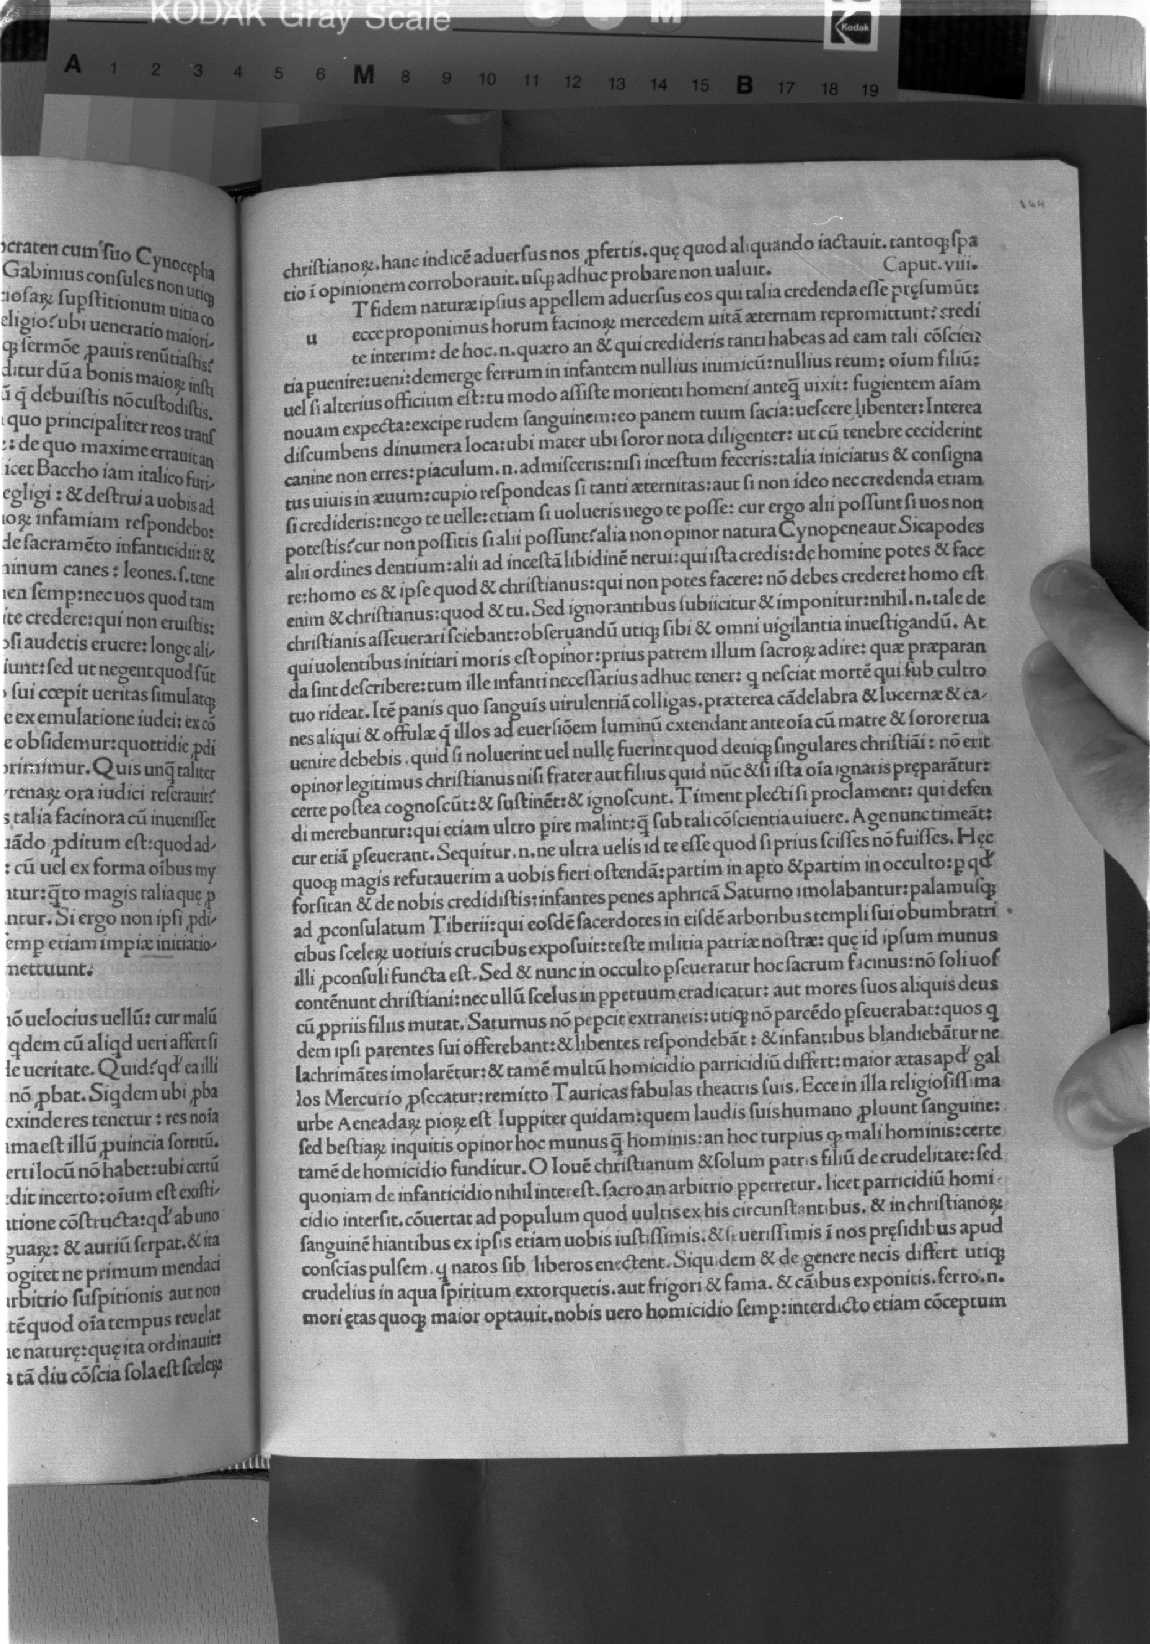 KODAK Gray Scale
C M
Kodak
A 1 2 3 4 5 6 M 8 9 10 11 12 13 14 15 B 17 18 19
144
ocraten cum suo Cynocepha
Gabinius consules non utiqꝫ
ciosaꝝ supstitionum uitia co
eligio? ubi ueneratio maiori⸗
qꝫ sermōe ꝓauis renūtiastis?
ditur dū a bonis maioꝝ insti
ū q̄ debuistis nō custodistis.
quo principaliter reos trans
: de quo maxime errauit an
licet Baccho iam italico furi⸗
egligi : & destrui a uobis ad
ioꝝ infamiam respondebo:
de sacramēto infanticidii: &
minum canes: leones. s. tene
en semp: nec uos quod tam
ite credere: qui non eruistis:
si audetis eruere: longe ali⸗
iunt: sed ut negent quod sūt
sui cœpit ueritas simulatqꝫ
e ex emulatione iudei: ex cō
e obsidemur: quottidie ꝓdi
primimur. Quis unq̄ taliter
yrenaꝝ ora iudici reserauit?
s talia facinora cū inuenisset
uādo ꝓditum est: quod ad⸗
: cū uel ex forma oībus my
ntur: q̄to magis talia quę ꝑ
ntur. Si ergo non ipsi ꝓdi⸗
semp etiam impiæ initiatio⸗
mettuunt.
nō uelocius uellū: cur malū
qdem cū aliqd ueri affert si
de ueritate. Quid? qd' ea illi
nō ꝓbat. Siqdem ubi ꝓba
exinde res tenetur : res noīa
ama est illū ꝓuincia sortitū.
erti locū nō habet: ubi certū
dit incerto: oīum est existi⸗
atione cōstructa: qd' ab uno
guaꝝ: & auriū serpat. & ita
ogitet ne primum mendaci
arbitrio suspitionis aut non
tē quod oīa tempus reuelat
ne naturę: quę ita ordinauit:
a tā diu cōscia sola est sceleꝝ
christianoꝝ. hanc indicē aduersus nos ꝓfertis. quę quod aliquando iactauit. tantoqꝫ spa
tio ī opinionem corroborauit. usqꝫ adhuc probare non ualuit.
Caput. viii.
T fidem naturæ ipsius appellem aduersus eos qui talia credenda esse pręsumūt:
u ecce proponimus horum facinoꝝ mercedem uitā æternam repromittunt: credi
te interim: de hoc. n. quæro an & qui credideris tanti habeas ad eam tali cōsciē⸗
tia puenire: ueni: demerge ferrum in infantem nullius inimicū: nullius reum: oīum filiū:
uel si alterius officium est: tu modo assiste morienti homeni anteq̄ uixit: fugientem aīam
nouam expecta: excipe rudem sanguinem: eo panem tuum sacia: uescere libenter: Interea
discumbens dinumera loca: ubi mater ubi soror nota diligenter: ut cū tenebre ceciderint
canine non erres: piaculum. n. admisceris: nisi incestum feceris: talia iniciatus & consigna
tus uiuis in æuum: cupio respondeas si tanti æternitas: aut si non ideo nec credenda etiam
si credideris: nego te uelle: etiam si uolueris nego te posse: cur ergo alii possunt si uos non
potestis? cur non possitis si alii possunt? alia non opinor natura Cynopene aut Sicapodes
alii ordines dentium: alii ad incestā libidinē nerui: qui ista credis: de homine potes & face
re: homo es & ipse quod & christianus: qui non potes facere: nō debes credere: homo est
enim & christianus: quod & tu. Sed ignorantibus subiicitur & imponitur: nihil. n. tale de
christianis asseuerari sciebant: obseruandū utiqꝫ sibi & omni uigilantia inuestigandū. At
qui uolentibus initiari moris est opinor: prius patrem illum sacroꝝ adire: quæ præparan
da sint describere: tum ille infanti necessarius adhuc tener: q nesciat mortē qui sub cultro
tuo rideat. Itē panis quo sanguis uirulentiā colligas. præterea cādelabra & lucernæ & ca⸗
nes aliqui & offulæ q̄ illos ad euersiōem luminū extendant ante oīa cū matre & sorore tua
uenire debebis. quid si noluerint uel nullę fuerint quod deniqꝫ singulares christiāi: nō erit
opinor legitimus christianus nisi frater aut filius quid nūc & si ista oīa ignaris pręparātur:
certe postea cognoscūt: & sustinēt: & ignoscunt. Timent plecti si proclament: qui defen
di merebuntur: qui etiam ultro ꝑire malint: q̄ sub tali cōscientia uiuere. Age nunc timeāt:
cur etiā ꝑseuerant. Sequitur. n. ne ultra uelis id te esse quod si prius scisses nō fuisses. Hęc
quoqꝫ magis refutauerim a uobis fieri ostendā: partim in apto & partim in occulto: ꝑ qd'
forsitan & de nobis credidistis: infantes penes aphricā Saturno imolabantur: palamusqꝫ
ad ꝓconsulatum Tiberii: qui eosdē sacerdotes in eisdē arboribus templi sui obumbratri
cibus sceleꝝ uotiuis crucibus exposuit: teste militia patriæ nostræ: quę id ipsum munus
illi ꝓconsuli functa est. Sed & nunc in occulto ꝑseueratur hoc sacrum facinus: nō soli uos
contēnunt christiani: nec ullū scelus in ꝑpetuum eradicatur: aut mores suos aliquis deus
cū ꝓpriis filiis mutat. Saturnus nō pepcit extraneis: utiqꝫ nō parcēdo ꝑseuerabat: quos q
dem ipsi parentes sui offerebant: & libentes respondebāt : & infantibus blandiebātur ne
lachrimātes imolarētur: & tamē multū homicidio parricidiū differt: maior ætas apd' gal
los Mercurio ꝓseccatur: remitto Tauricas fabulas theatris suis. Ecce in illa religiosissima
urbe Aeneadaꝝ pioꝝ est Iuppiter quidam: quem laudis suis humano ꝓluunt sanguine:
sed bestiaꝝ inquitis opinor hoc munus q̄ hominis: an hoc turpius qꝫ mali hominis: certe
tamē de homicidio funditur. O Iouē christianum & solum patris filiū de crudelitate: sed
quoniam de infanticidio nihil interest. sacro an arbitrio ꝑpetretur. licet parricidiū homi
cidio intersit. cōuertat ad populum quod uultis ex his circunstantibus. & in christianoꝝ
sanguinē hiantibus ex ipsis etiam uobis iustissimis. & seuerissimis ī nos pręsidibus apud
conscīas pulsem. q natos sibi liberos enectent. Siquidem & de genere necis differt utiqꝫ
crudelius in aqua spiritum extorquetis. aut frigori & fama. & cāibus exponitis. ferro. n.
mori ętas quoqꝫ maior optauit. nobis uero homicidio semp: interdicto etiam cōceptum